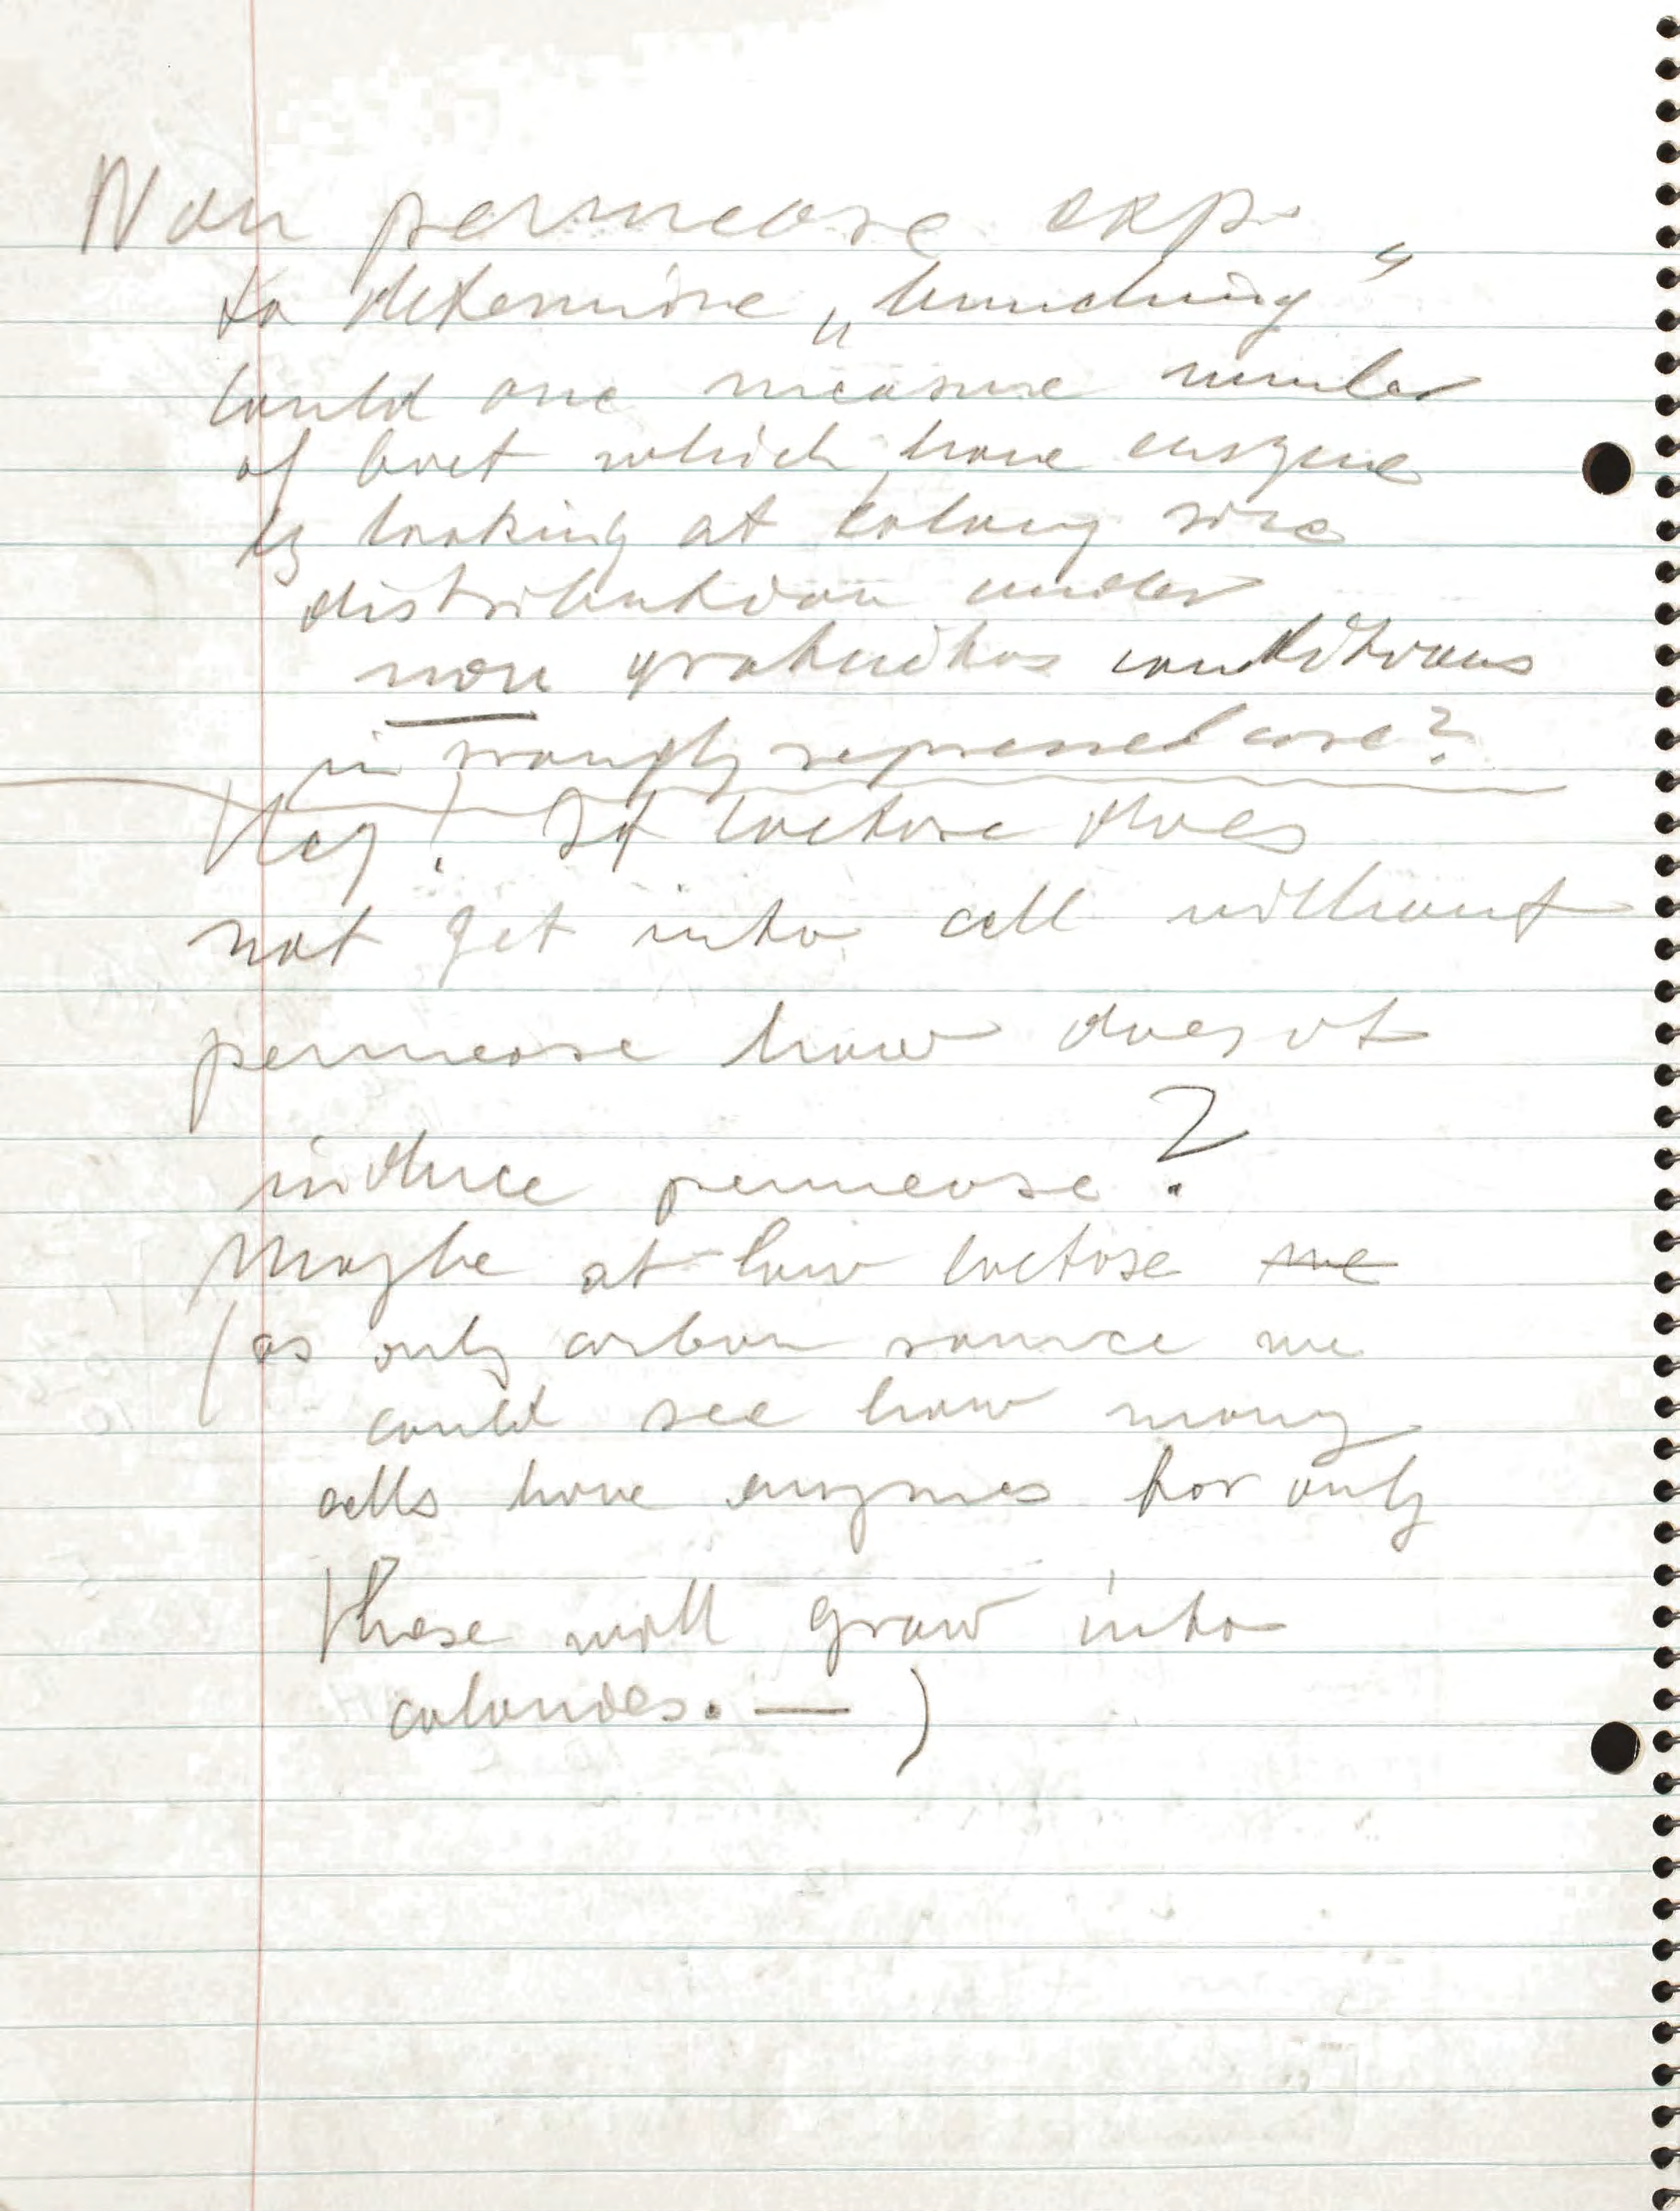 Non permease exp.
to determine „bunching"
Could one measure number
of bact which have enzyme
by looking at colony size
distribution under
non gratuitos conditions
in repressed case?
Hey! If lactose does
not get into cell without
permease how does it
induce permease?
Maybe at low lactose me
(as only carbon source we
could see how many
cells have enzymes for only
these will grow into
colonies. — )